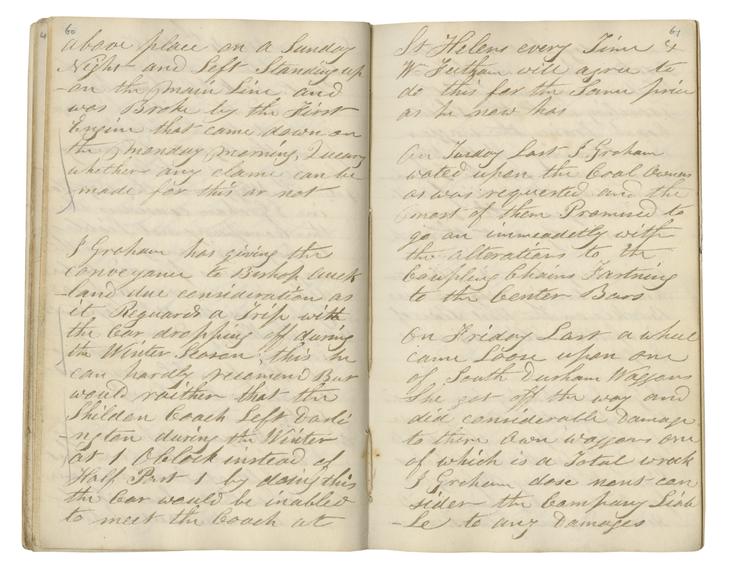 60
above place on a Sunday
Night and Left Standing up
-on the main Line and
was Broke by the First
Engine that came down on
the monday morning, Quary
whether any claim can be
made for this or not
J Graham has giving the
conveyance to Bishop Auck
-land due consideration as
it Requards a Trip with
the Car dropping off during
the Winter Season; this he
can hardly recomend But
would raither that the
Shildon Coach Left Darli
-ngton during the Winter
at 1 Oclock instead of
Half Past 1 by doing this
the Car would be inabled
to meet the Coach at
61
St Helens every Time &
Wm will agree to
do this for the Same price
as he now has
On Tusday Last J Graham
wated upon the Coal Owners
as was requested and the
most of them Promised to
go on immeadetly with
the alterations to the
Coupling Chains Fastning
to the Center Bars
On Friday Last a wheel
came Loose upon one
of South Durham Waggons
She get off the way and
did considerable Damage
to there Own waggons one
of which is a Total wrack
J Graham dose nont con
sider the Company Liab
-Le to any Damages